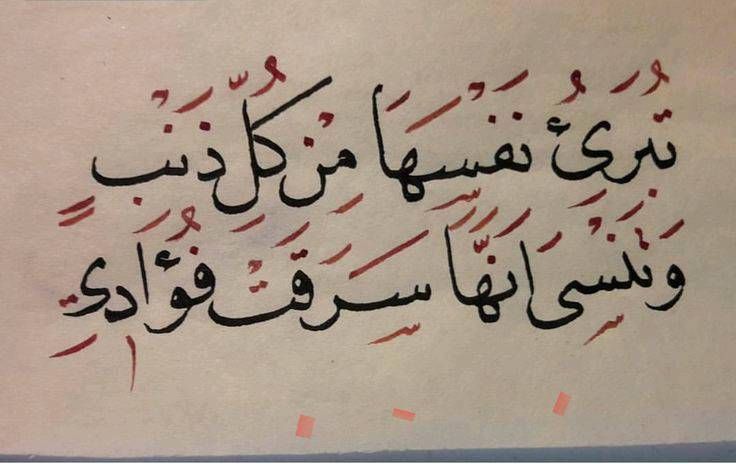 تُبَرِئُ نَفْسَهَا مِنْ كُلِّ ذَنْبٍ
وَتَنْسَى اَنَّهَا سَرَقَتْ فُؤَادِي